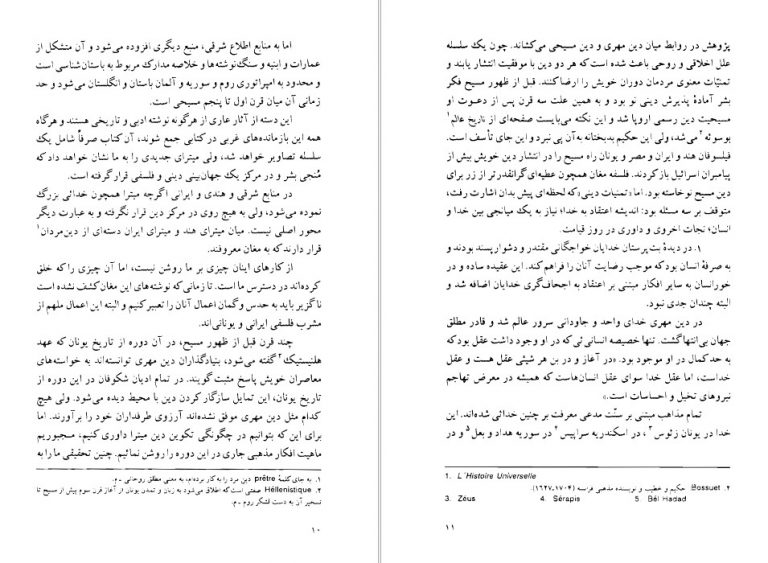 اما به منابع اطلاع شرقی، منبع دیگری افزوده می‌شود و آن متشکل از
عمارات و ابنیه و سنگ‌نوشته‌ها و خلاصه مدارک مربوط به باستان‌شناسی است
و محدود به امپراتوری روم و سوریه و آلمان باستان و انگلستان می‌شود و حد
زمانی آن میان قرن اول تا پنجم مسیحی است.
این دسته از آثار عاری از هرگونه نوشته ادبی و تاریخی هستند و هرگاه
همه این بازمانده‌های غربی در کتابی جمع شوند، آن کتاب صرفاً شامل یک
سلسله تصاویر خواهد شد، ولی میترای جدیدی را به ما نشان خواهد داد که
مُنجی بشر و در مرکز یک جهان‌بینی دینی و فلسفی قرار گرفته است.
در منابع شرقی و هندی و ایرانی اگرچه میترا همچون خدائی بزرگ
نموده می‌شود، ولی به هیچ روی در مرکز دین قرار نگرفته و به عبارت دیگر
محور اصلی نیست. میان میترای هند و میترای ایران دسته‌ای از دین‌مردان۱
قرار دارند که به مغان معروفند.
از کارهای اینان چیزی بر ما روشن نیست، اما آن چیزی را که خلق
کرده‌اند در دسترس ما است. تا زمانی که نوشته‌های این مغان کشف نشده است
ناگزیر باید به حدس و گمان اعمال آنان را تعبیر کنیم و البته این اعمال ملهم از
مشرب فلسفی ایرانی و یونانی‌اند.
چند قرن قبل از ظهور مسیح، در آن دوره از تاریخ یونان که عهد
هلنیستیک۲ گفته می‌شود، بنیادگزاران دین مهری توانسته‌اند به خواسته‌های
معاصران خویش پاسخ مثبت گویند. در تمام ادیان شکوفان در این دوره از
تاریخ یونان، این تمایل سازگار کردن دین با محیط دیده می‌شود. ولی هیچ
کدام مثل دین مهری موفق نشده‌اند آرزوی طرفداران خود را برآورند. اما
برای این که بتوانیم در چگونگی تکوین دین میترا داوری کنیم، مجبوریم
ماهیت افکار مذهبی جاری در این دوره را روشن نمائیم. چنین تحقیقی ما را به
۱. به جای کلمهٔ prêtre دین مرد را به کار برده‌ام، به معنی مطلق روحانی ـ م.
۲. Héllenistique صفتی است که اطلاق می‌شود به زبان و تمدن یونان از آغاز قرن سوم پیش از مسیح تا
تسخیر آن به دست لشکر روم ـ م.
۱۰
پژوهش در روابط میان دین مهری و دین مسیحی می‌کشاند. چون یک سلسله
علل اخلاقی و روحی باعث شده است که هر دو دین با موفقیت انتشار یابند و
تمنیّات معنوی مردمان دوران خویش را ارضا کنند. قبل از ظهور مسیح فکر
بشر آمادهٔ پذیرش دینی نو بود و به همین علت سه قرن پس از دعوت او
مسیحیت دین رسمی اروپا شد و این نکته می‌بایست صفحه‌ای از تاریخ عالم۱
بوسوئه۲ می‌شد، ولی این حکیم بدبختانه به آن پی نبرد و این جای تأسف است.
فیلسوفان هند و ایران و مصر و یونان راه مسیح را در انتشار دین خویش بیش از
پیامبران اسرائیل باز کردند. فلسفه مغان همچون عطیه‌ای گرانقدرتر از زر برای
دین مسیح نوخاسته بود. اما «تمنیات دینی» که لحظه‌ای پیش بدان اشارت رفت،
متوقف بر سه مسئله بود: اندیشه اعتقاد به خدا؛ نیاز به یک میانجی بین خدا و
انسان؛ نجات اخروی و داوری در روز قیامت.
۱. در دیدهٔ بت‌پرستان خدایان خواجگانی مقتدر و دشوارپسند بودند و
به صرفهٔ انسان بود که موجب رضایت آنان را فراهم کند. این عقیده ساده و در
خور انسان به سایر افکار مبتنی بر اعتقاد به اجحاف‌گری خدایان اضافه شد و
البته چندان جدی نبود.
در دین مهری خدای واحد و جاودانی سرور عالم شد و قادر مطلق
جهان بی‌انتها گشت. تنها خصیصه انسانی‌ئی که در او وجود داشت عقل بود که
به حد کمال در او موجود بود. «در آغاز و در بن هر شیئی عقل هست و عقل
خداست، اما عقل خدا سوای عقل انسان‌هاست که همیشه در معرض تهاجم
نیروهای تخیل و احساسات است.»
تمام مذاهب مبتنی بر سنّت مدعی معرفت بر چنین خدائی شده‌اند. این
خدا در یونان زئوس۳، در اسکندریه سراپیس۴ در سوریه هداد و بعل۵ و در
1. L'Histoire Universelle
۲. Bossuet حکیم و خطیب و نویسنده مذهبی فرانسه (۱۷۰۴-۱۶۲۷).
3. Zéus 4. Sérapis 5. Bél Hadad
۱۱